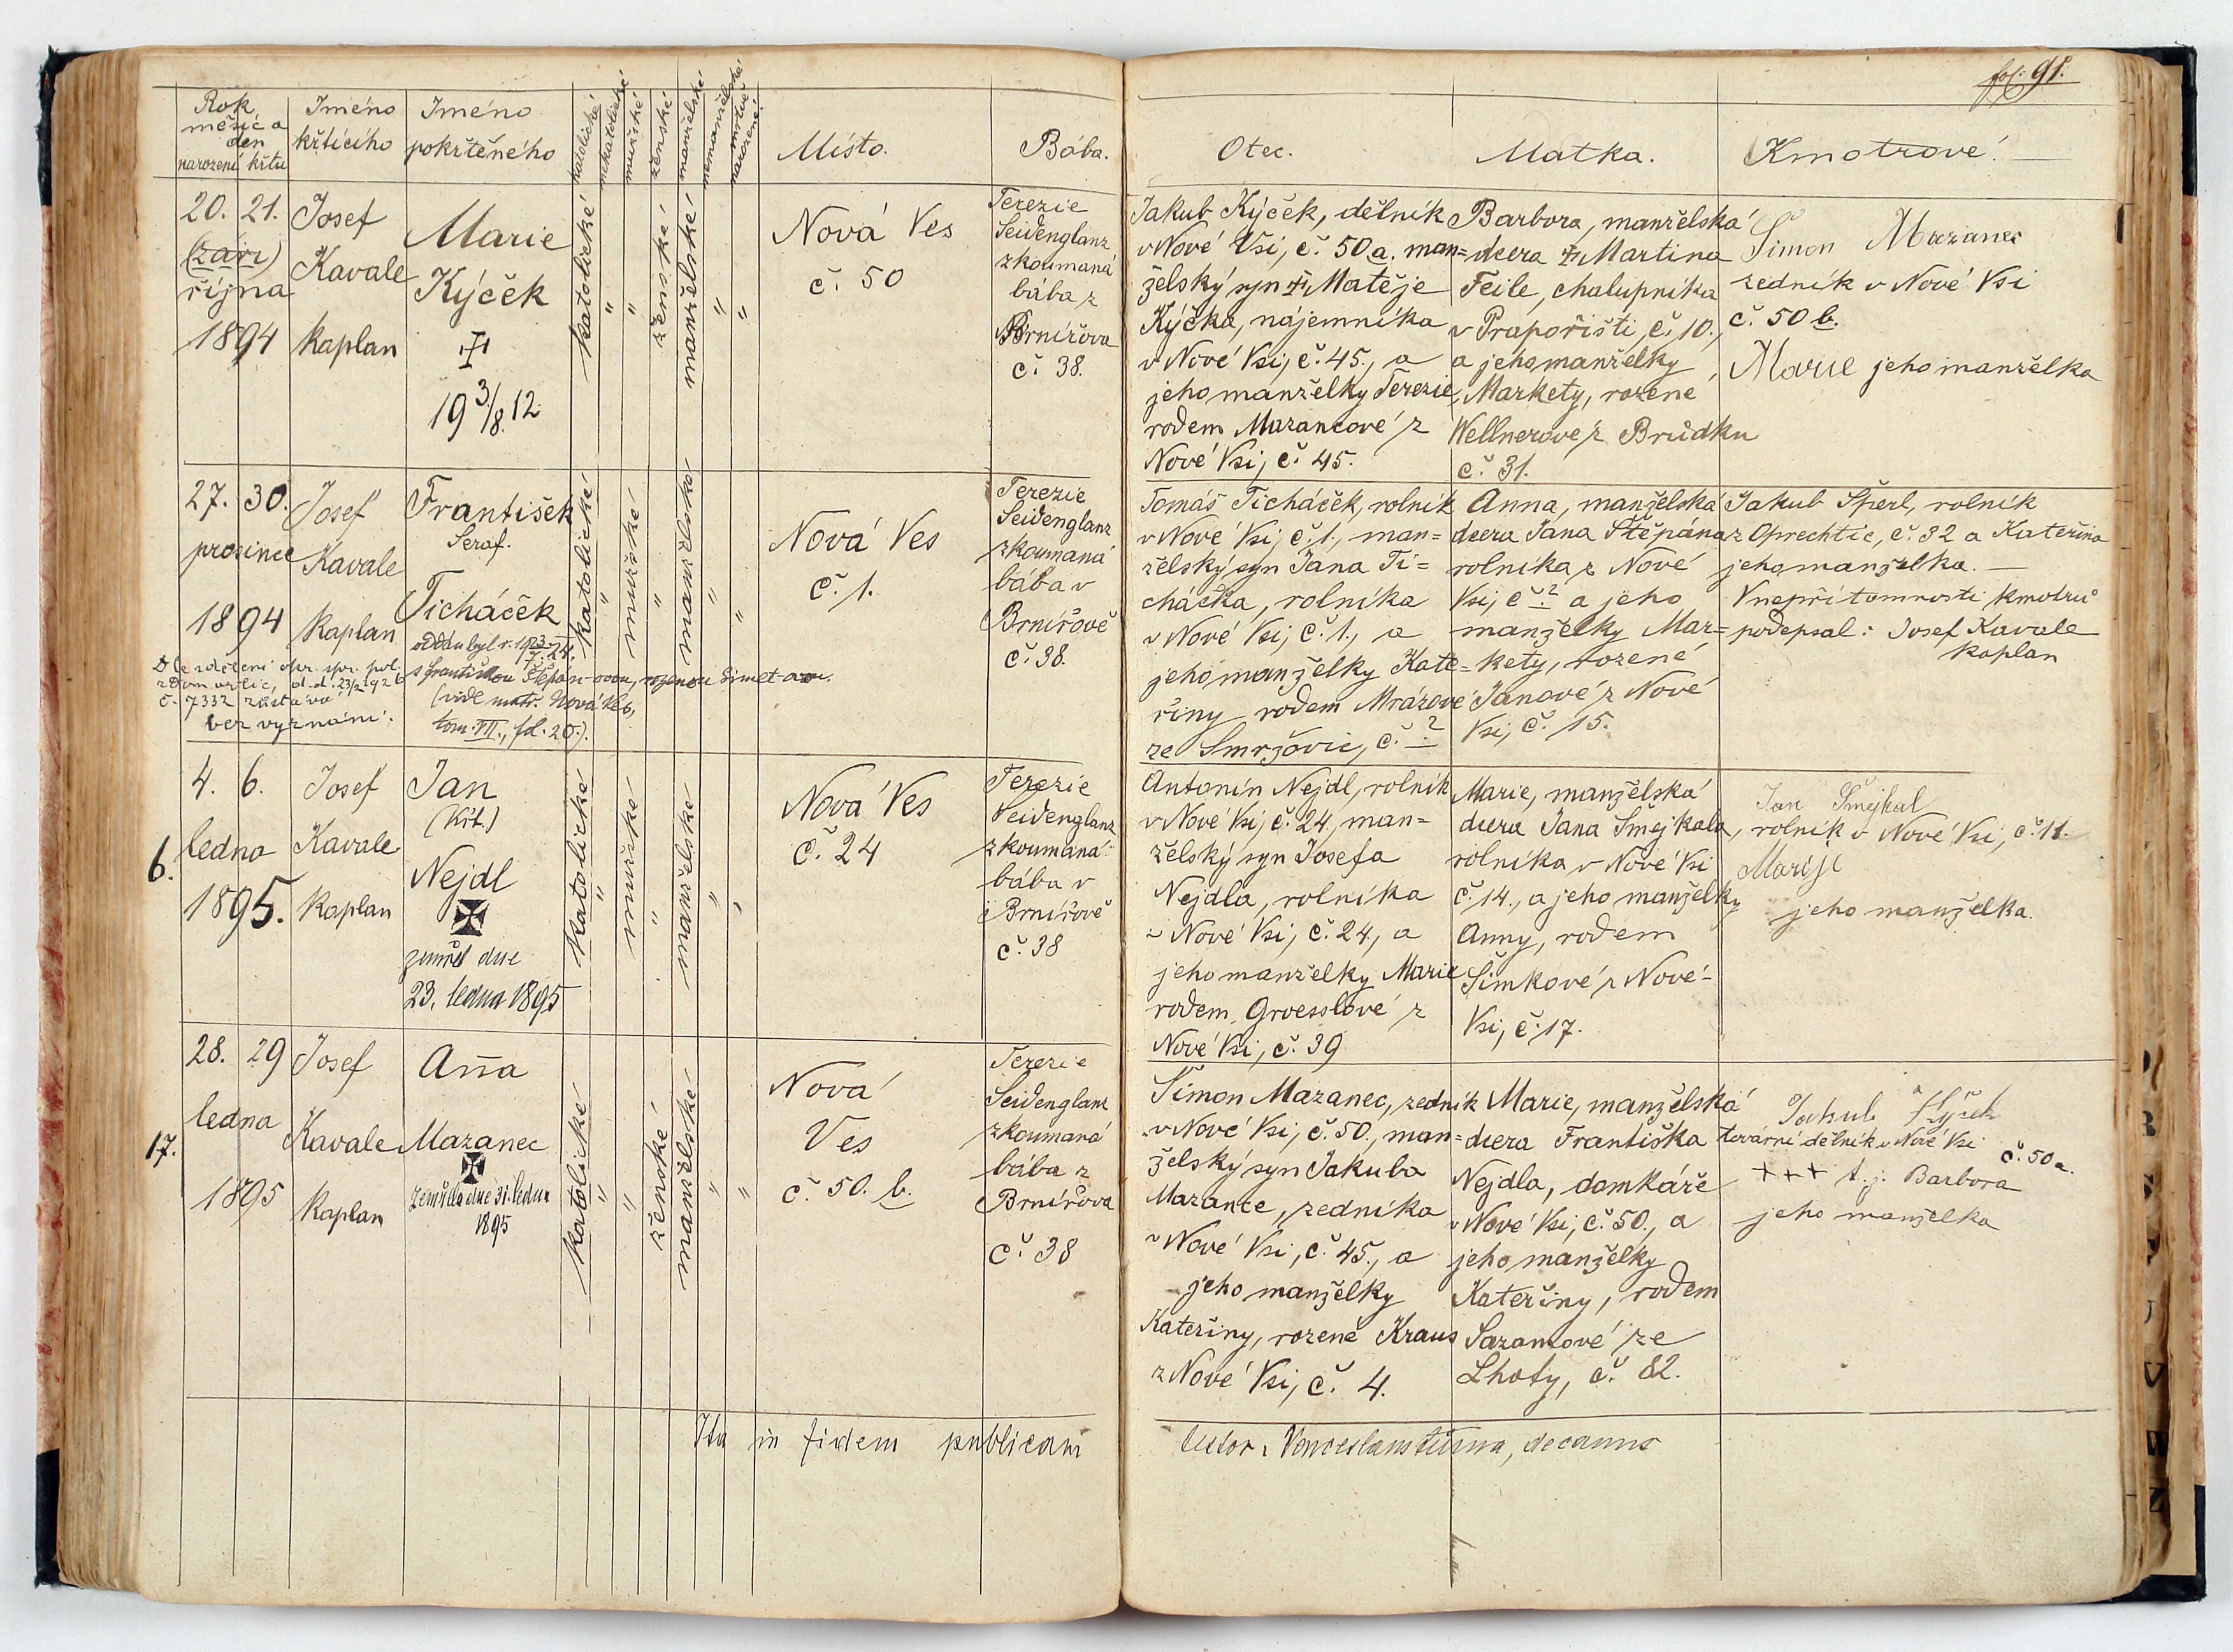 fol. 91.
Rok
měsíc a
den
narození křtu
Jméno
křtícího
Jméno
pokřtěného
katolické
nekatolické
mužské
ženské
manželské
nemanželské
mrtvě
narozené
Místo.
Bába.
Otec.
Matka.
Kmotrové.
20. 21.
(září)
října
1894
Josef
Kavale
kaplan
Marie
Kýček
19 3/8. 12
katolické
"
"
ženské
manželské
"
"
Nová Ves
č. 50
Terezie
Seidenglanz
zkoumaná
bába z
Brnířova
č. 38.
Jakub Kýček, dělník
v Nové Vsi, č. 50 a. man=
želský syn Matěje
Kýčka, nájemníka
v Nové Vsi, č. 45., a
jeho manželky Terezie,
rodem Mazancové z
Nové Vsi, č. 45.
Barbora, manželská
dcera Martina
Feile, chalupníka
v Prapořišti, č. 10.,
a jeho manželky
Markety, rozené
Wellnerové z Brůdku
č. 31.
Šimon Mazanec
zedník v Nové Vsi
č. 50 b.
Marie jeho manželka
27. 30.
prosince
1894
Josef
Kavale
kaplan
František
Seraf.
Ticháček
oddán byl r. 1923
s Františkou Štěpán-ovou, rozenou
(vide matr. Nová Ves,
tom. VII., fol. 20.).
č. 7332 zůstává
bez vyznání.
katolické
"
mužské
"
manželské
"
"
Nová Ves
č. 1.
Terezie
Seidenglanz
zkoumaná
bába v
Brnířově
č. 38.
Tomáš Ticháček, rolník
v Nové Vsi, č. 1., man=
želský syn Jana Ti=
cháčka, rolníka
v Nové Vsi, č. 1., a
jeho manželky Kate=
řiny rodem Mrázové
ze Smržovic, č. ?
Anna, manželská
dcera Jana Štěpána
rolníka z Nové
Vsi, č. ? a jeho
manželky Mar=
kety, rozené
Janové z Nové
Vsi, č. 15.
Jakub Šperl, rolník
z Oprechtic, č. 32 a Kateřina
jeho manželka. —
V nepřítomnosti kmotrů
podepsal: Josef Kavale
kaplan
6.
4. 6.
ledna
1895.
Josef
Kavale
kaplan
Jan
(Křt.)
Nejdl
zemřel dne
23. ledna 1895
katolické
"
mužské
"
manželské
"
"
Nová Ves
č. 24
Terezie
Seidenglanz
zkoumaná
bába v
Brnířově
č. 38
Antonín Nejdl, rolník
v Nové Vsi, č. 24, man=
želský syn Josefa
Nejdla, rolníka
v Nové Vsi, č. 24, a
jeho manželky Marie
rodem Groesslové z
Nové Vsi, č. 39
Marie, manželská
dcera Jana Smejkala,
rolníka v Nové Vsi
č. 14., a jeho manželky
Anny, rodem
Šimkové z Nové
Vsi, č. 17.
Jan Smejkal
rolník v Nové Vsi, č. 11.
Marije
jeho manželka.
17.
28. 29
ledna
1895
Josef
Kavale
kaplan
Anna
Mazanec
zemřela dne 31. ledna
1895
katolické
"
"
ženské
manželské
"
"
Nová
Ves
č. 50. b.
Terezie
Seidenglanz
zkoumaná
bába z
Brnířova
č. 38
Šimon Mazanec, zedník
v Nové Vsi, č. 50., man=
želský syn Jakuba
Mazance, zedníka
v Nové Vsi, č. 45., a
jeho manželky
Kateřiny, rozené Kraus
z Nové Vsi, č. 4.
Marie, manželská
dcera Františka
Nejdla, domkáře
v Nové Vsi, č. 50., a
jeho manželky
Kateřiny, rodem
Sazamové ze
Lhoty, č. 82.
Jakub Kýček
tovární dělník v Nové Vsi č. 50 a.
+++ t. j. Barbora
jeho manželka
Ita in fidem publicam
testor: Venceslaus Tůma, decanus